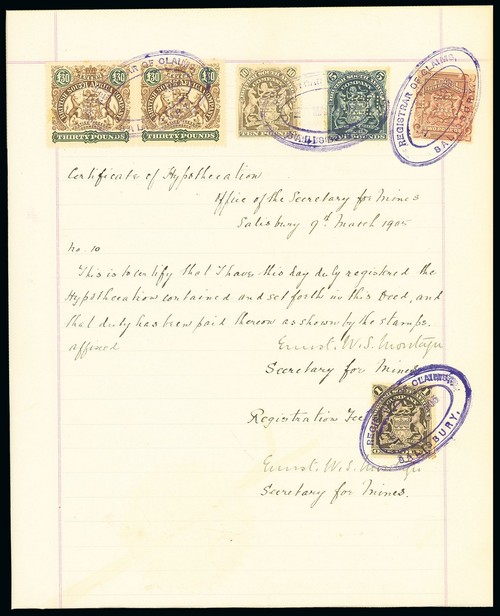 £30 £30 £30 £30 10 10 5 5
BRITISH SOUTH AFRICA COMPANY
THIRTY POUNDS THIRTY POUNDS TEN POUNDS FIVE POUNDS
REGISTRAR OF CLAIMS,
Certificate of Hypothecation
Office of the Secretary for Mines
Salisbury 9th March 1905
No. 10
This is to certify that I have this day duly registered the
Hypothecation contained and set forth in this Deed, and
that duty has been paid thereon as shown by the stamps
affixed
Ernest. W. S. Montagu
Secretary for Mines
1 1
REGISTRAR OF CLAIMS,
Registration Fee
SALISBURY.
Ernest. W. S. Montagu
Secretary for Mines.